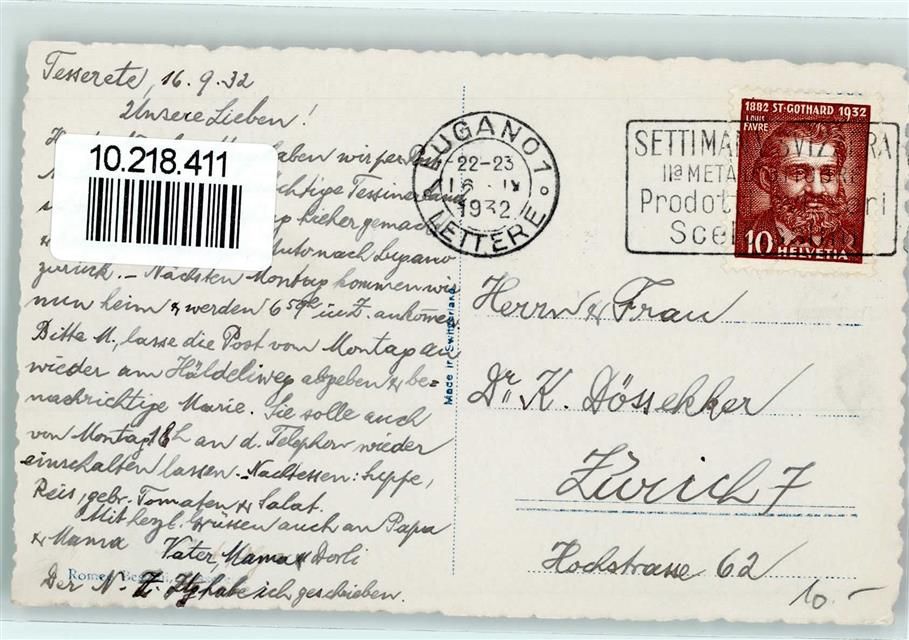 Tesserete, 16.9.32
Unsere Lieben!
haben wir per
Tessiner
hieher gemacht
Auto nach Lugano
zurück. – Nächsten Montag kommen wir
nun heim & werden 6 59 in Z. ankommen
Bitte M., lasse die Post vom Montag an
wieder am Häldeliweg abgeben & be-
nachrichtige Marie. Sie solle auch
von Montag 18h an d. Telephon wieder
einschalten lassen. – Nachtessen: Suppe,
Reis, gebr. Tomaten & Salat.
Mit herzl. Grüssen auch an Papa
& Mama Vater, Mama & Dorli
Der N. Z. Ztg habe ich geschrieben.
10.218.411
Romeo
Made in Switzerland
LUGANO 1
22-23
16. IX
1932
LETTERE
SETTIMA SVIZ RA
IIa METÀ
Prodot ri
Sce
1882 ST-GOTHARD 1932
LOUIS
FAVRE
10 HELVETIA
Herrn & Frau
Dr K. Dössekker
Zürich 7
Hochstrasse 62
10.–